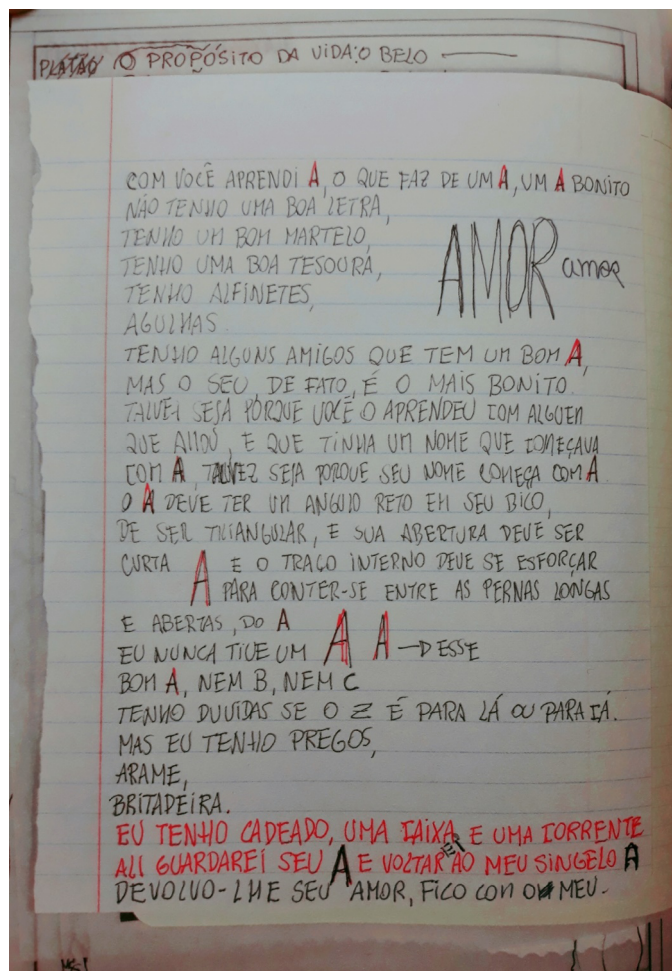 PLATÃO O PROPÓSITO DA VIDA: O BELO
COM VOCÊ APRENDI A, O QUE FAZ DE UM A, UM A BONITO
NÃO TENHO UMA BOA LETRA,
TENHO UM BOM MARTELO,
TENHO UMA BOA TESOURA,
TENHO ALFINETES,
AGULHAS.
AMOR amor
TENHO ALGUNS AMIGOS QUE TEM UM BOM A,
MAS O SEU, DE FATO, É O MAIS BONITO.
TALVEZ SEJA PORQUE VOCÊ O APRENDEU COM ALGUEM
QUE AMOU, E QUE TINHA UM NOME QUE COMEÇAVA
COM A. TALVEZ SEJA PORQUE SEU NOME COMEÇA COM A.
O A DEVE TER UM ANGULO RETO EM SEU BICO,
DE SER TRIANGULAR, E SUA ABERTURA DEVE SER
CURTA A E O TRAÇO INTERNO DEVE SE ESFORÇAR
PARA CONTER-SE ENTRE AS PERNAS LONGAS
E ABERTAS, DO A
EU NUNCA TIVE UM A A DESSE
BOM A, NEM B, NEM C
TENHO DUVIDAS SE O Z É PARA LÁ OU PARA CÁ.
MAS EU TENHO PREGOS,
ARAME,
BRITADEIRA.
EU TENHO CADEADO, UMA CAIXA, E UMA CORRENTE
ALI GUARDAREI SEU A E VOLTAREI AO MEU SINGELO A
DEVOLVO-LHE SEU AMOR, FICO COM O MEU.